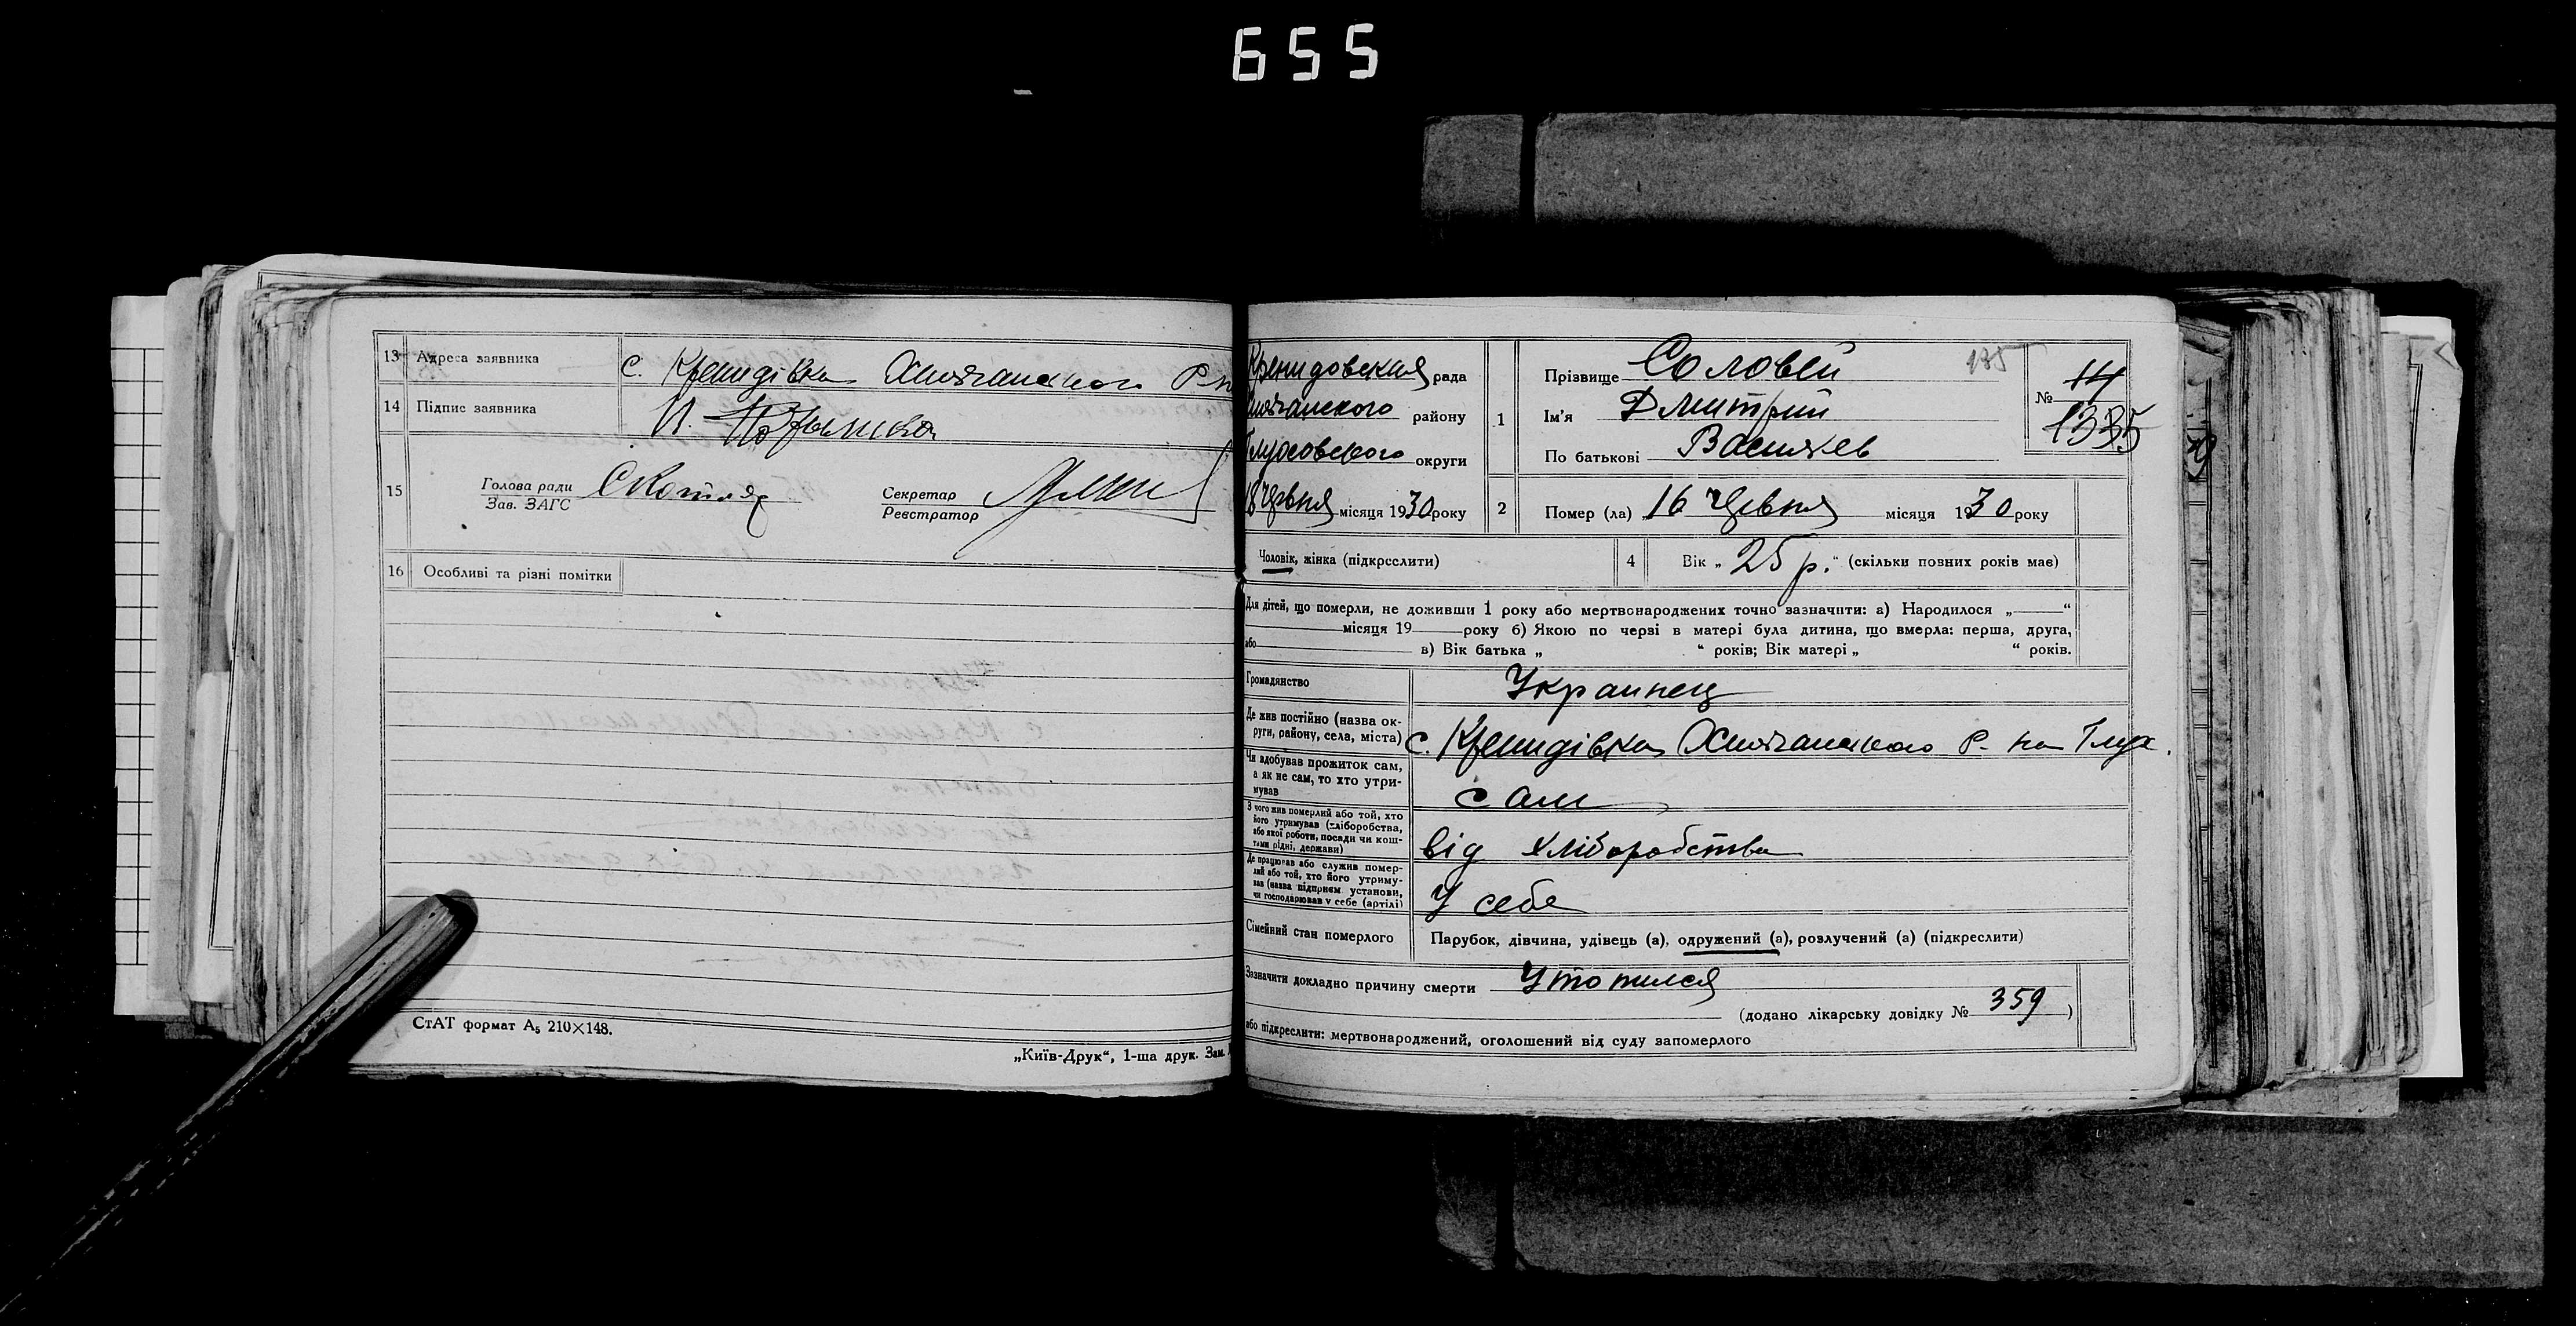 655
13 Адреса заявника с. Кренидівка Хильчанского Р-н
14 Підпис заявника И.
15 Голова ради
Зав. ЗАГС
Секретар
Реєстратор
16 Особливі та різні помітки
СтАТ формат А5 210×148.
„Київ-Друк“, 1-ша друк. Зам.
Кренидовская рада
району
Глуховского округи
18 Червня місяця 1930 року
1
Прізвище Соловей
Ім'я Дмитрий
По батькові Васильев
135
№ 14
1335
2 Помер (ла) „16 Червня місяця 1930 року
Чоловік, жінка (підкреслити)
4 Вік „25 р.“ (скільки повних років має)
Для дітей, що померли, не доживши 1 року або мертвонароджених точно зазначити: а) Народилося „ “
місяця 19 року б) Якою по черзі в матері була дитина, що вмерла: перша, друга,
або в) Вік батька „ “ років; Вік матері „ “ років.
Громадянство Украинец
Де жив постійно (назва округи, району, села, міста) с. Кренидівка Хильчанского Р-на Глух.
Чи здобував прожиток сам,
а як не сам, то хто утри-
мував
сам
З чого жив померлий або той, хто
його утримував (хліборобства,
або якої роботи, посади чи кош-
тами рідні, держави)
від хліборобства
Де працював або служив помер-
лий або той, хто його утриму-
вав (назва підприєм. установи,
чи господарював у себе (артілі)
У себе
Сімейний стан померлого Парубок, дівчина, удівець (а), одружений (а), розлучений (а) (підкреслити)
Зазначити докладно причину смерти Утопился
(додано лікарську довідку № 359)
або підкреслити: мертвонароджений, оголошений від суду запомерлого